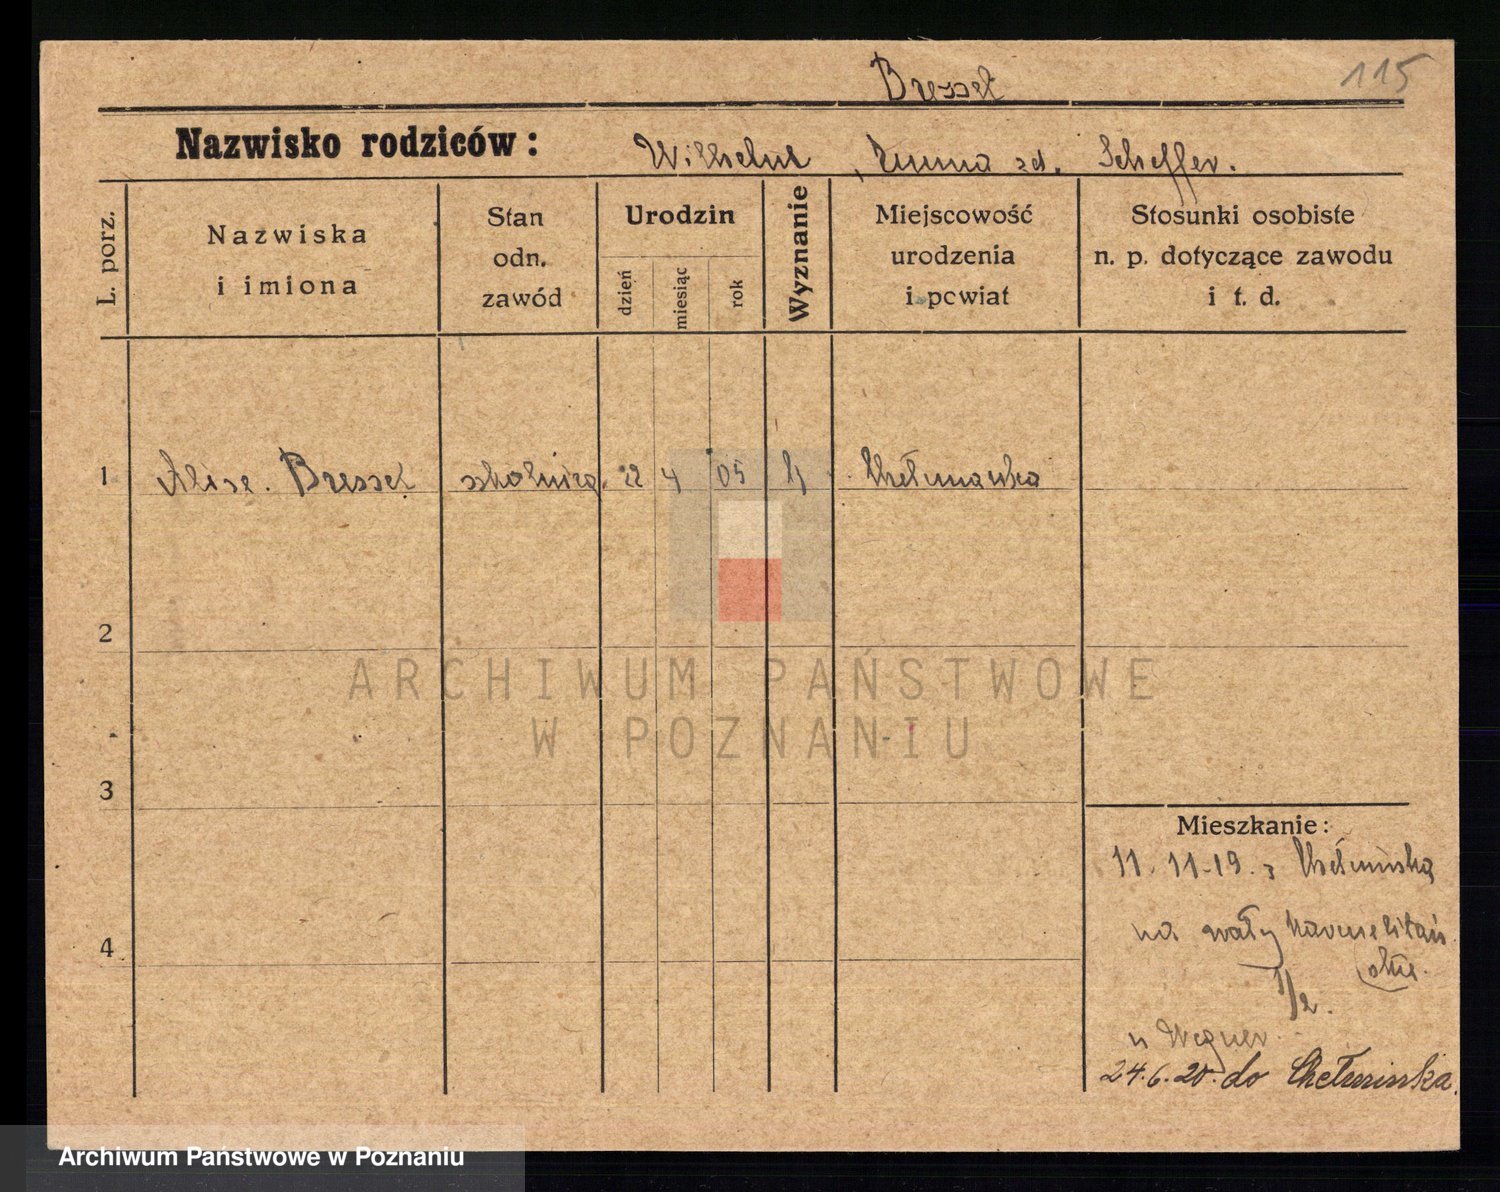 115
Bressel
Nazwisko rodziców: Wilhelm, Emma zd. Scheffer.
L. porz.
Nazwiska
i imiona
Stan
odn.
zawód
Urodzin
dzień
miesiąc
rok
Wyznanie
Miejscowość
urodzenia
i powiat
Stosunki osobiste
n. p. dotyczące zawodu
i t. d.
1 Alise. Bressel 22 4 05 Chełmonska
2
ARCHIWUM PAŃSTWOWE
W POZNANIU
3
Mieszkanie:
11. 11-19. z Chełmińska
na wały Karmelitań
skie.
1/2.
u Wegner.
4
24.6.20. do Chełminka.
Archiwum Państwowe w Poznaniu